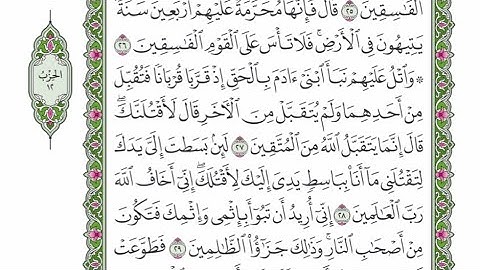 ٱلۡفَٰسِقِينَ ٢٥ قَالَ فَإِنَّهَا مُحَرَّمَةٌ عَلَيۡهِمۡۛ أَرۡبَعِينَ سَنَةٗۛ
يَتِيهُونَ فِي ٱلۡأَرۡضِۚ فَلَا تَأۡسَ عَلَى ٱلۡقَوۡمِ ٱلۡفَٰسِقِينَ ٢٦
۞ وَٱتۡلُ عَلَيۡهِمۡ نَبَأَ ٱبۡنَيۡ ءَادَمَ بِٱلۡحَقِّ إِذۡ قَرَّبَا قُرۡبَانٗا فَتُقُبِّلَ
مِنۡ أَحَدِهِمَا وَلَمۡ يُتَقَبَّلۡ مِنَ ٱلۡأٓخَرِ قَالَ لَأَقۡتُلَنَّكَۖ
قَالَ إِنَّمَا يَتَقَبَّلُ ٱللَّهُ مِنَ ٱلۡمُتَّقِينَ ٢٧ لَئِنۢ بَسَطتَ إِلَيَّ يَدَكَ
لِتَقۡتُلَنِي مَآ أَنَا۠ بِبَاسِطٖ يَدِيَ إِلَيۡكَ لِأَقۡتُلَكَۖ إِنِّيٓ أَخَافُ ٱللَّهَ
رَبَّ ٱلۡعَٰلَمِينَ ٢٨ إِنِّيٓ أُرِيدُ أَن تَبُوٓأَ بِإِثۡمِي وَإِثۡمِكَ فَتَكُونَ
مِنۡ أَصۡحَٰبِ ٱلنَّارِۚ وَذَٰلِكَ جَزَٰٓؤُاْ ٱلظَّٰلِمِينَ ٢٩ فَطَوَّعَتۡ
الحِزۡبُ
١٢